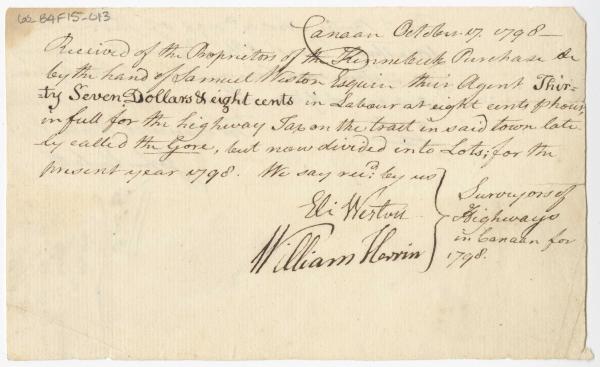 60 B4F15-013
Canaan October 17, 1798—
Received of the Proprietors of the Kennebeck Purchase &c
by the hand of Samuel Weston Esquire their Agent Thir-
-ty Seven Dollars & eight cents in Labour at eight cents ꝑ hour,
in full for the highway Tax on the tract in said town late-
ly called the Gore, but now divided into Lots; for the
present year 1798. We say recd by us
Eli Weston
William Herrin
Surveyors of
Highways
in Canaan for
1798.